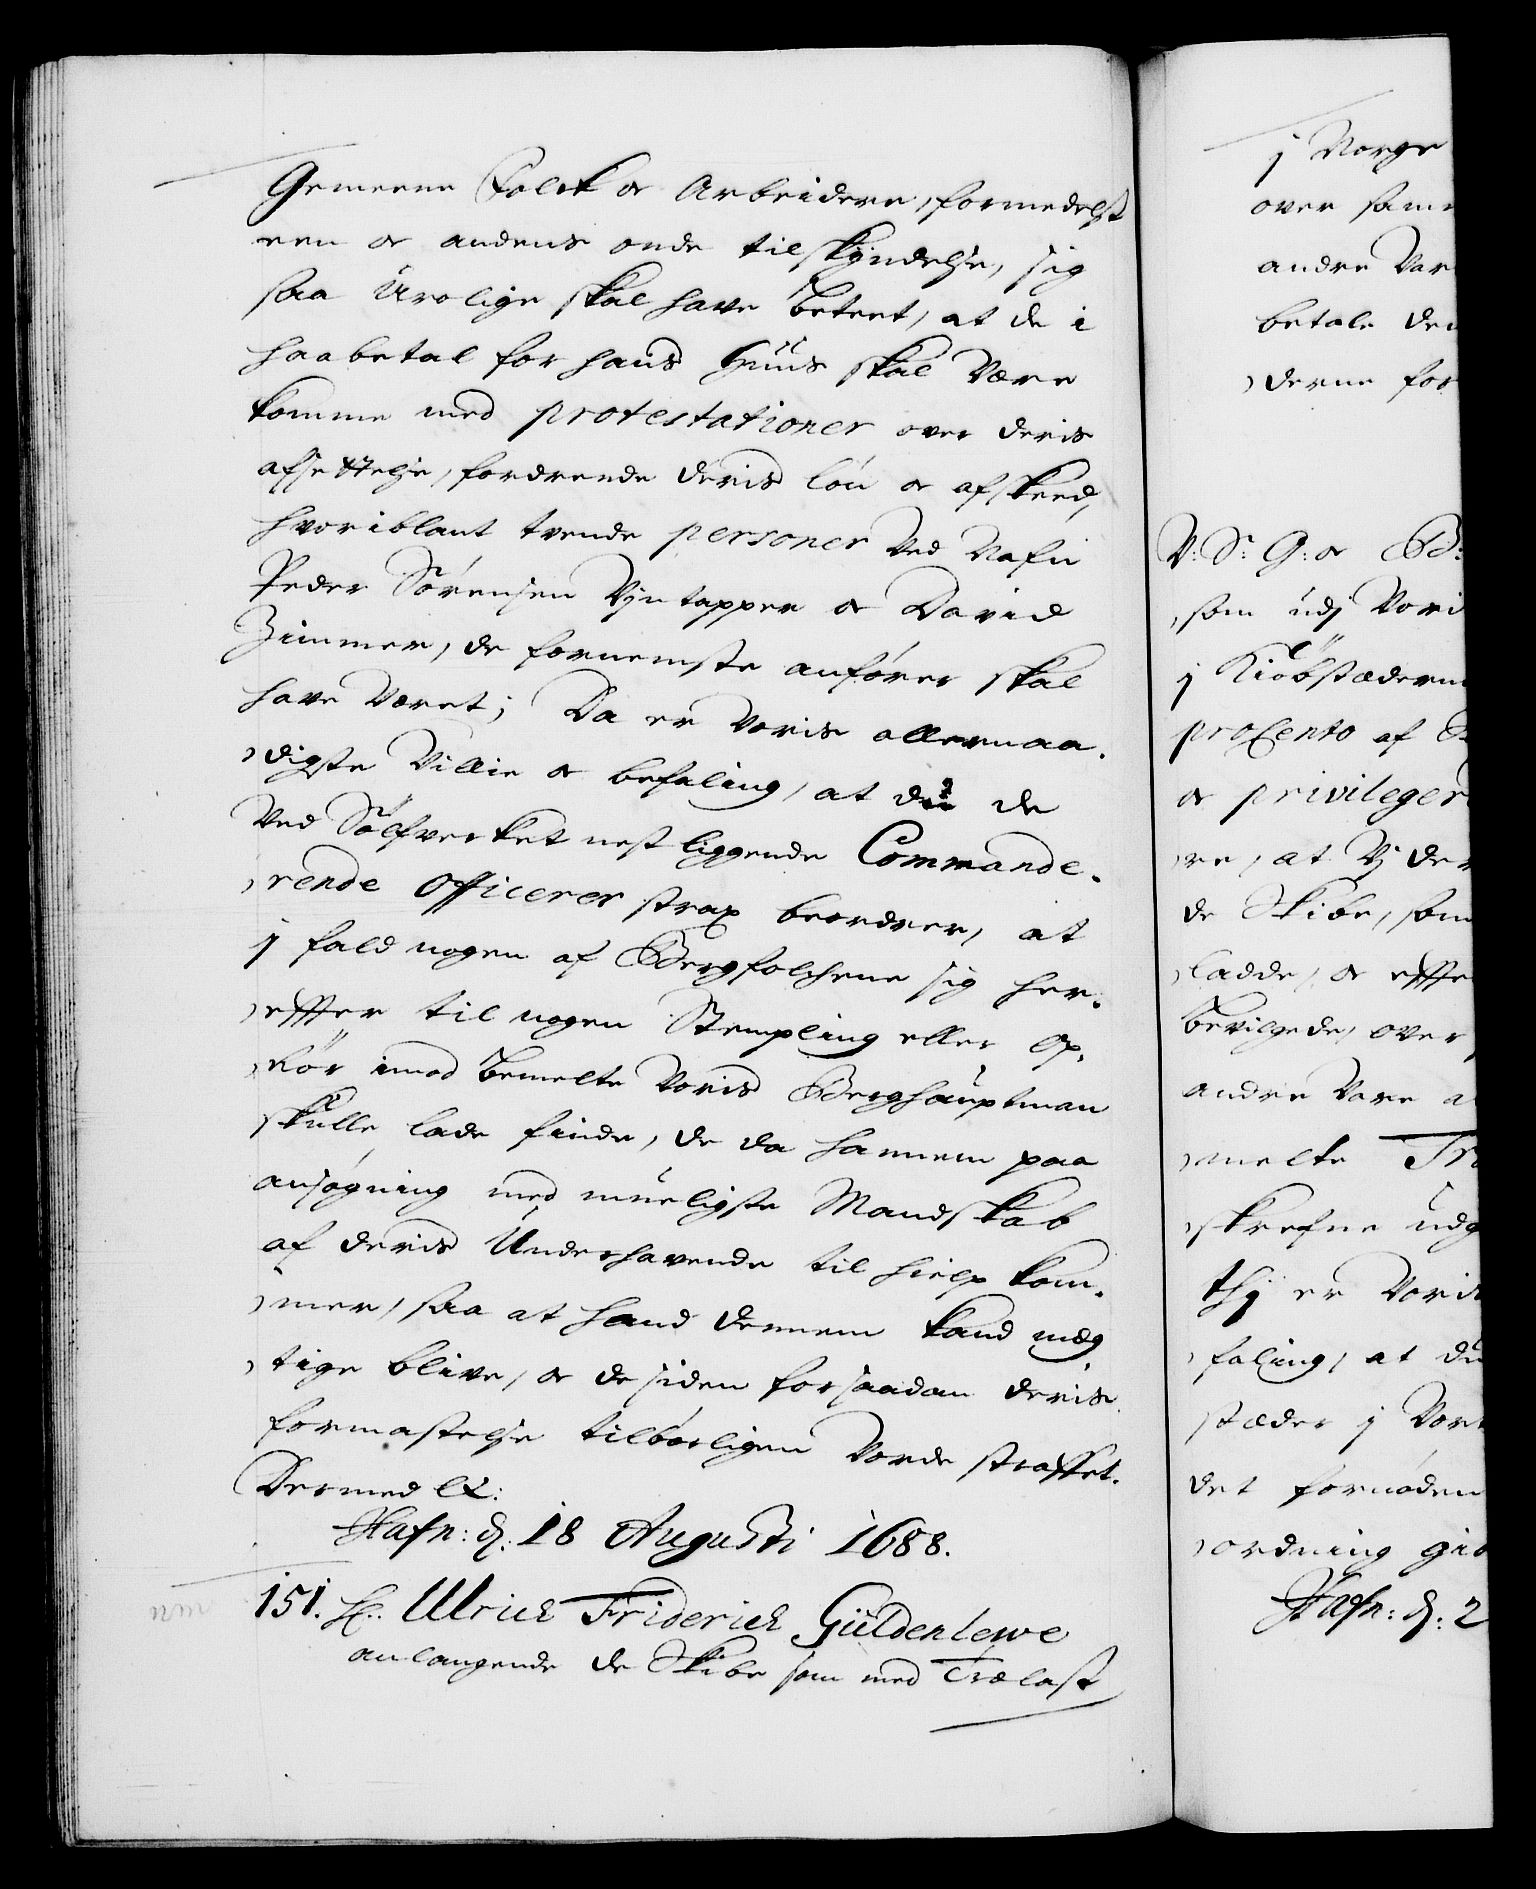 Gemeene Folck oc Arbeidere, formedelst
een oc andens onde tilskyndelse, sig
saa Urolige skal have beteet, at de i
haabetal for hans Huus skal være
komme med protestationer over deris
afsettelse, fordrende deris løn oc afskeed,
hvoriblant tvende personer ved Nafn
Peder Sørensen Vyntapper oc David
Zimmer, de fornemste anfører skal
have været; Da er voris allernaa-
digste Villie oc befaling, at du de
ved Sølfverket nest liggende Commande-
rende Officerer strax beordrer, at
j fald nogen af Bergfolchene sig her-
effter til nogen Stempling eller Op-
rør imod bemelte voris Berghauptman
skulle lade finde, de da hannem paa
ansøgning med mueligste Mandskab
af deris Underhavende til hielp kom-
mer, saa at hand dennem kand mæg
tige blive, oc de siden for saadan deris
formastelse tilbørligen vorde straffet.
Dermed etc:
Hafn: d. 18 Augusti 1688.
151. H. Ulrich Friderich Güldenlewe
anlangende de Skibe som med Trælast
j Norge
over sam
andre Var
betale den
derne for
V. S. G: oc B:
som udj Vori
j Kiøbstædern
proCento af
oc privileger
re, at Vj der
de Skibe, som
ladde, oc effte
bevilgede, over
andre Vare a
melte Tr
skrefne udg
thj er Voris
faling, at du
stæder j Vort
det fornøden
ordning gi
Hafn: d. 2